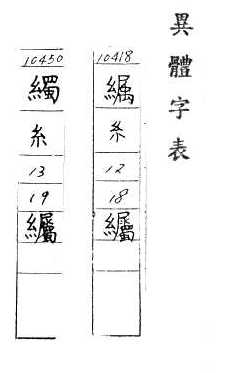 異體字表
10418
糸
12
18
10450
糸
13
19